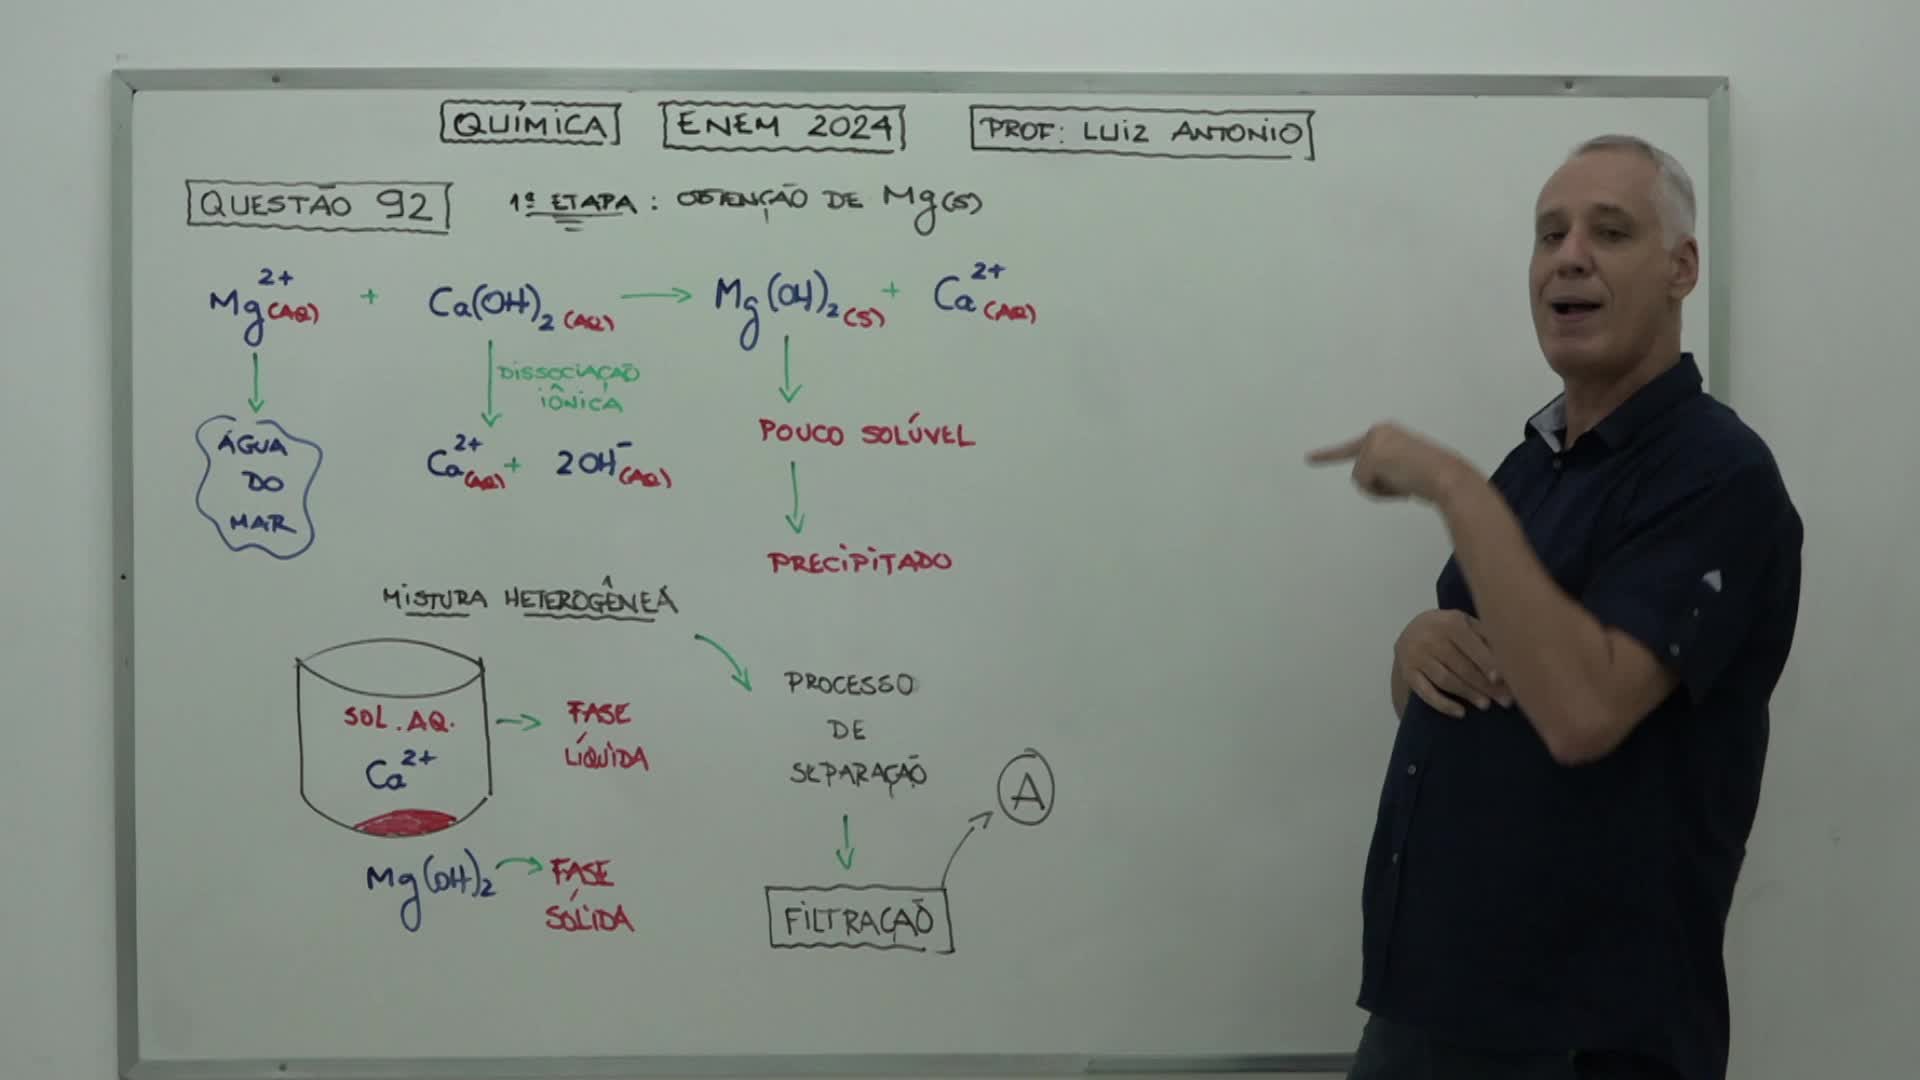 QUÍMICA ENEM 2024 PROF: LUIZ ANTONIO
QUESTÃO 92 1ª ETAPA: OBTENÇÃO DE Mg(S)
Mg²⁺(AQ) + Ca(OH)₂(AQ) → Mg(OH)₂(S) + Ca²⁺(AQ)
DISSOCIAÇÃO
IÔNICA
ÁGUA
DO
MAR
Ca²⁺(AQ) + 2OH⁻(AQ)
POUCO SOLÚVEL
PRECIPITADO
MISTURA HETEROGÊNEA
SOL. AQ.
Ca²⁺
FASE
LÍQUIDA
Mg(OH)₂
FASE
SÓLIDA
PROCESSO
DE
SEPARAÇÃO
FILTRAÇAÕ
A